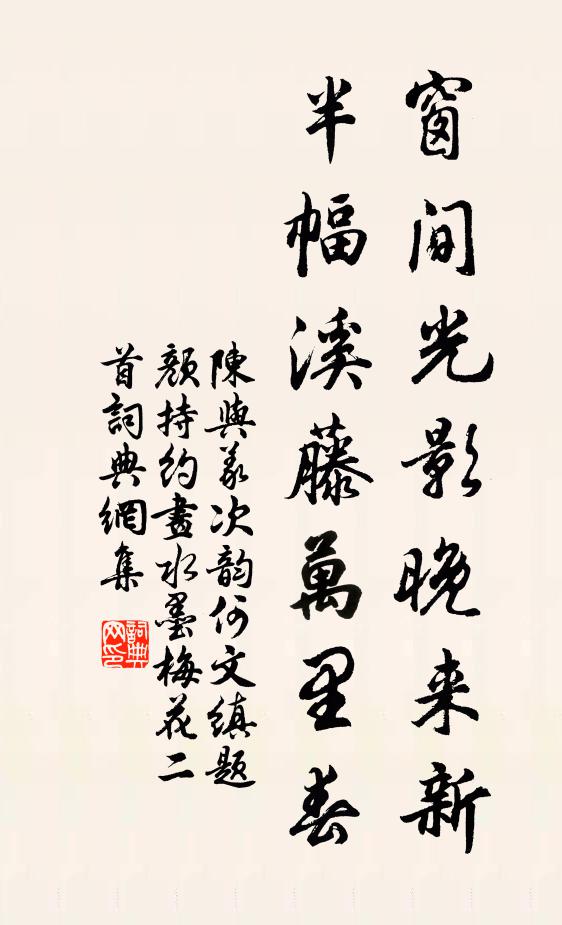 窗间光影晚来新
半幅溪藤萬里春
陳與義次韵何文縝題
顏持約畫水墨梅花二
首詞典網集
詞典
网印